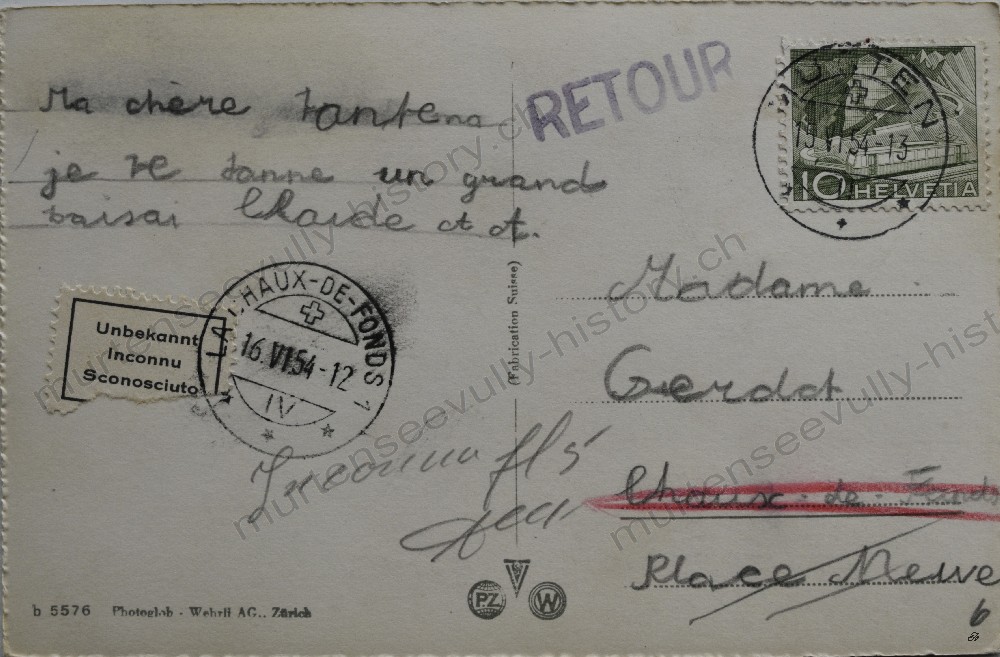 RETOUR
MOTIER
15.VI.54-13
10 HELVETIA
Ma chère tantena
je te donne un grand
baisai
LA CHAUX-DE-FONDS 1
16.VI.54-12
IV
Unbekannt
Inconnu
Sconosciuto
(Fabrication Suisse)
Madame
Gerdot
Chaux-de-Fonds
Place Neuve
6
Inconnu
b 5576 Photoglob - Wehrli AG., Zürich
PZ W
murtenseevully-history.ch
murtenseevully-history.ch
murtenseevully-history.ch